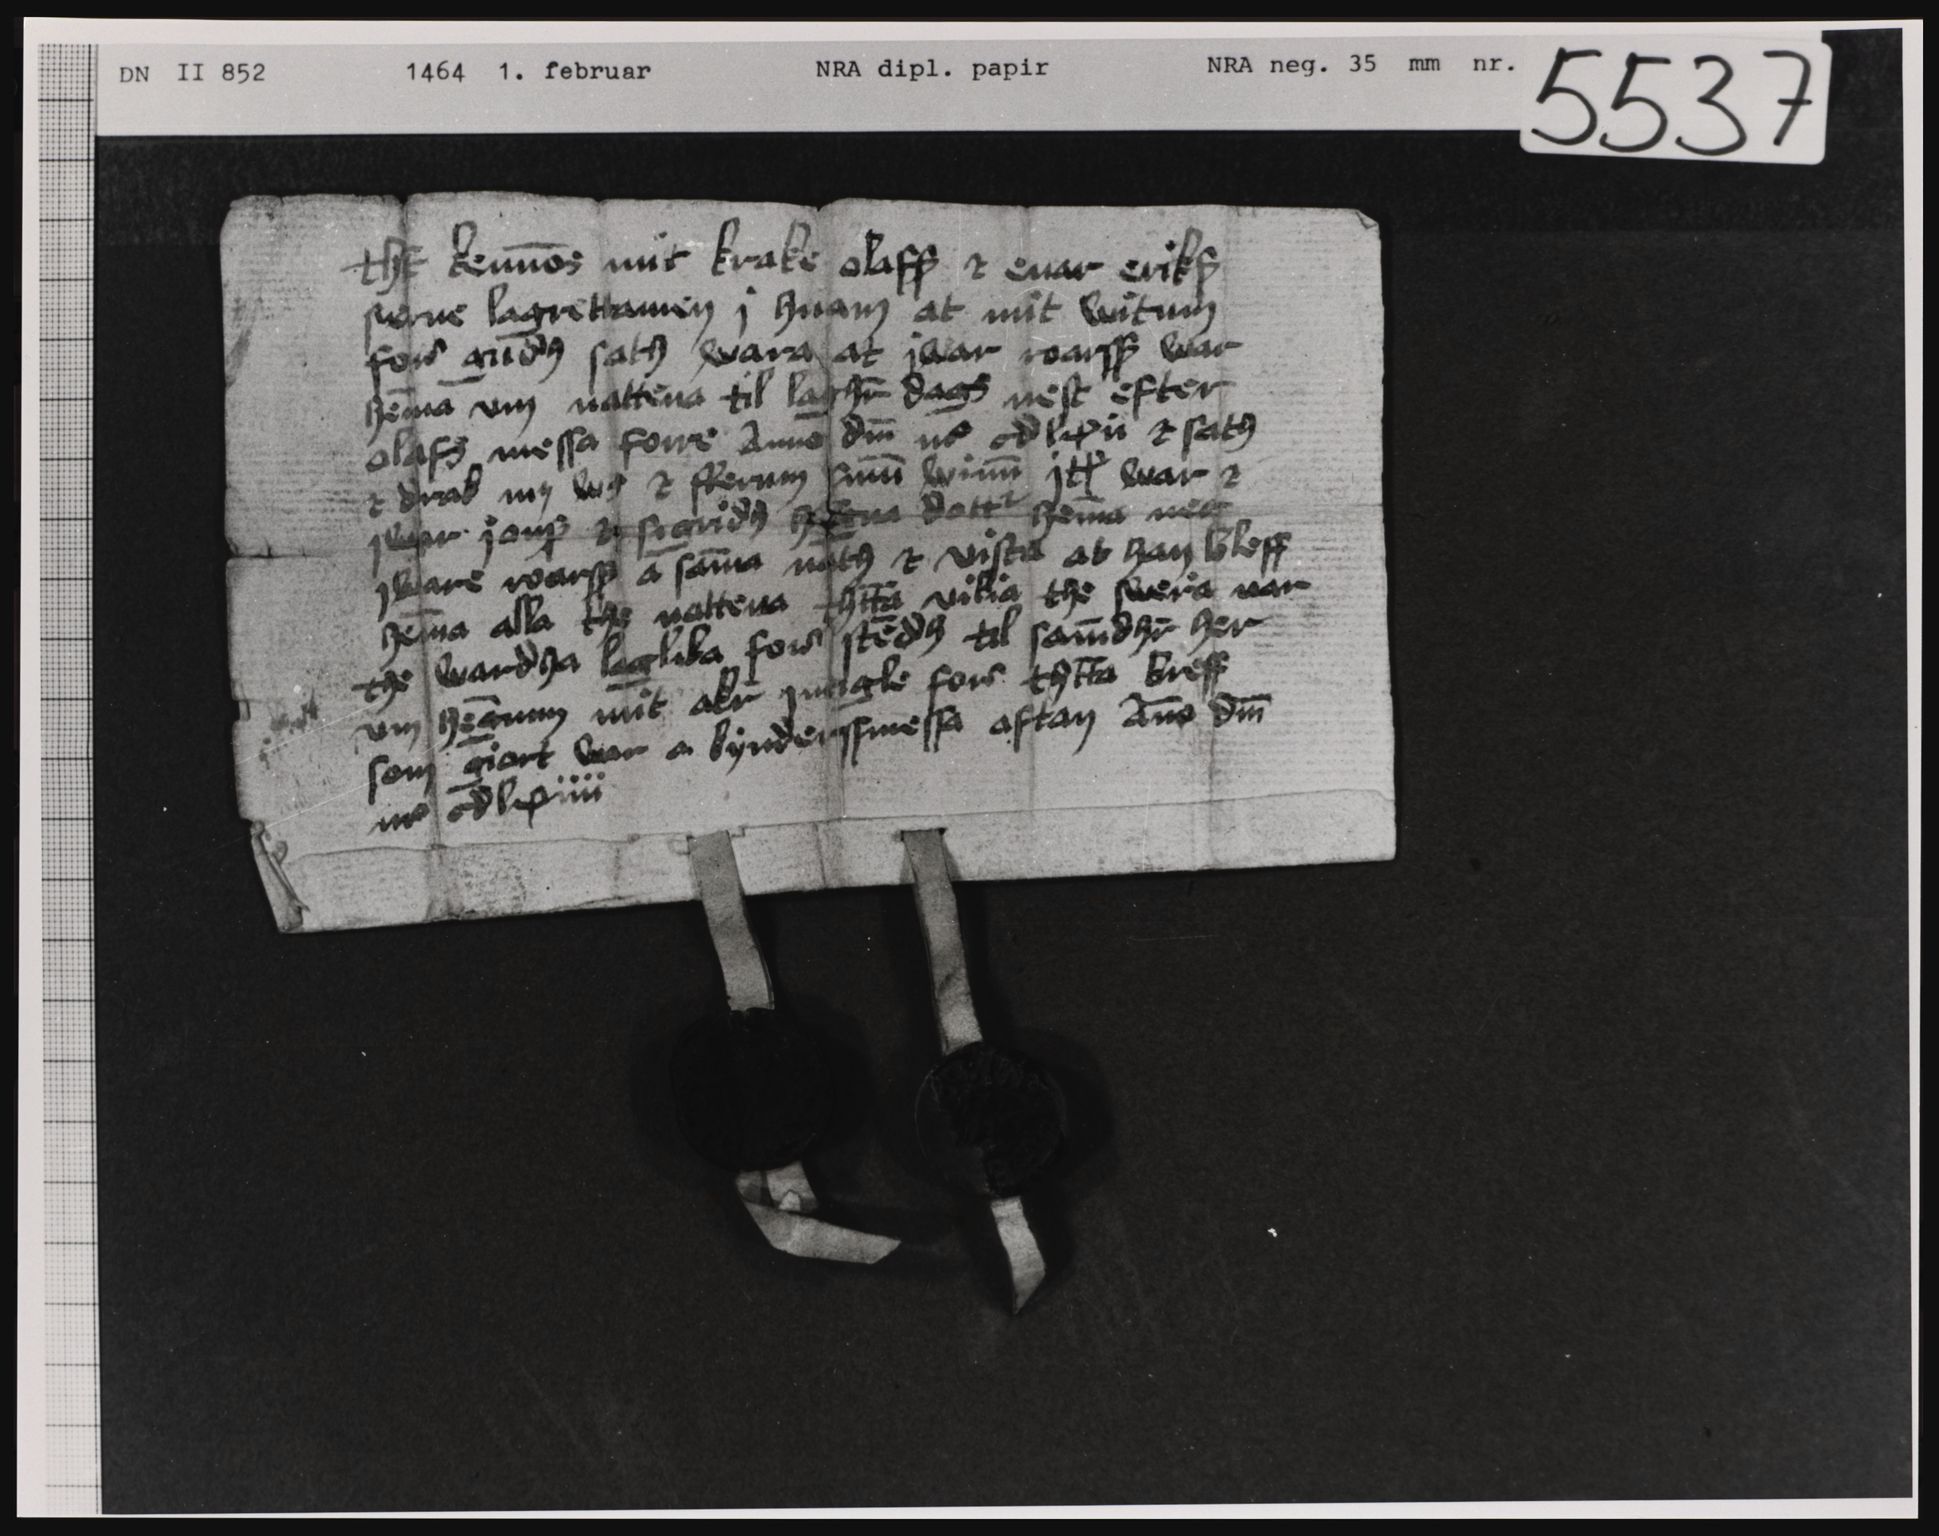 DN II 852 1464 1. februar NRA dipl. papir NRA neg. 35 mm nr. 5537
thꝫ kennos mit krake olafſ ⁊ enar erikſ
suerne lagrettamen j hnam at mit witum
fore gudh sath wara at jwar roarſ war
hema vm nattena til laghr dags nest efter
olafs messa forre Anno dm mo cdlxii ⁊ sath
⁊ drak mz ws ⁊ flerum win jtꝫ war ⁊
jwar jonſ ⁊ sigridh dott hema meꝫ
jware roarſ a sama nath ⁊ vista at han bleff
hema alla the nattena thtta vilia the sweria nar
the wardha laglika fore stedh til samdhr her
vm hegnum mit okr incigle fore thtta breff
som giort war a kynderssmessa aftan Ano dm
mo cdlxiiii